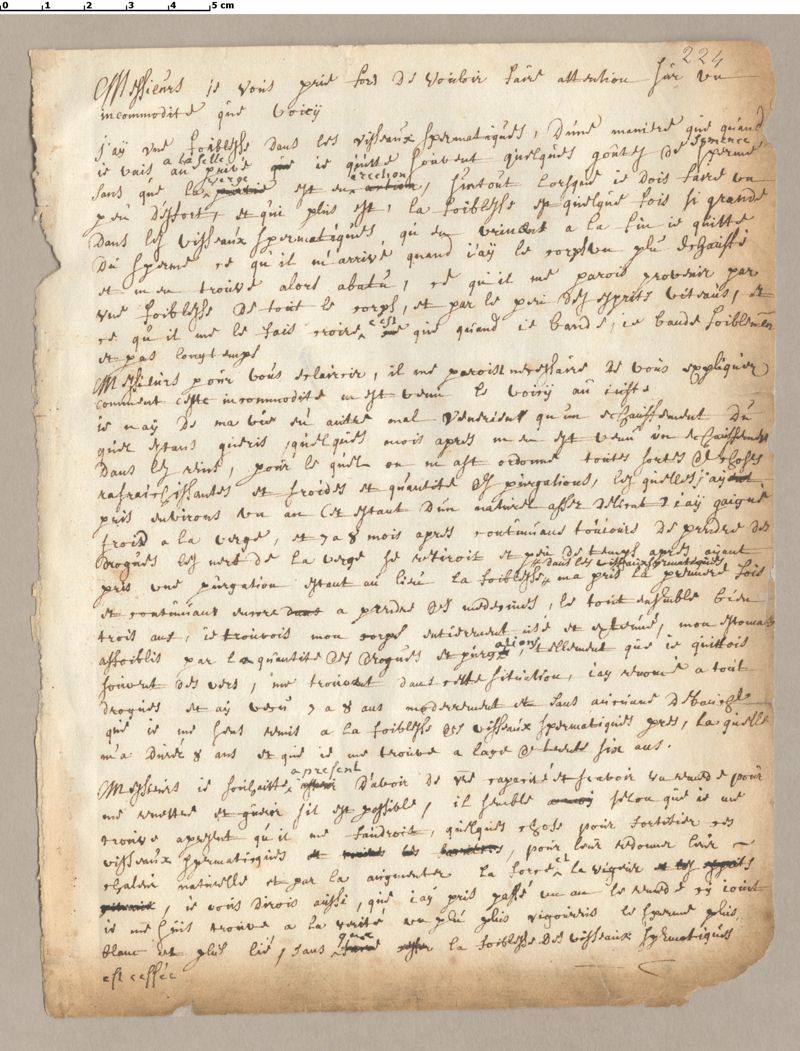 0 1 2 3 4 5 cm
224
Messieurs ie vous prie fort de vouloir faire attention sur un
incommodite que voicÿ
j'aÿ une foiblesse dans les visseaux spermatiques, d'une maniere que quand
ie vais a la selle au privé que ie quitte souvent quelques goutes de semence sperme
sans que la verge partie est en erection action, surtout lorsque ie dois faire un
peu d'effort, et qui plus est, la foiblesse est quelque fois si grande
dans les visseaux spermatiques, qu'en urinent a la fin ie quitte
du sperme ce qu'il m'arrive quand i'aÿ le corps un plu echauffé
et m'en trouve alors abatu, ce qu'il me parois provenir par
une foiblesse de tout le corps, et par le peu des esprits viteaus, et
ce qu'il me le fais croire c'est que quand ie bande, ie bande foiblement
et pas longtemps
Messieurs pour vous eclaircir, il me parois necessaire de vous expliquer
comment ceste incommodite m'est venu le voisÿ au iuste
ie n'aÿ de ma vie eu autre mal venerien qu'un echauffement du
quel estans gueris, quelques mois apres m'en est venu un echauffement
dans les reins, pour le quel on m'ast ordonne toutes sortes de choses
rafraichissantes et froides et quantité des purgations, les quelles j'aÿ
pris environs un an (et estant d'un naturel asser delicat) i'aÿ gaigné
froid a la verge, et 7 a 8 mois apres continuans toujours de prendre des
drogues les nerf de la verge se retiroit et peu de temps apres aÿant
pris une purgation estant au lieu la foiblesse dans les visseaux spermatiques ma pris la premiere fois
et continuant encore dans a prendre des medecines, le tout ensemble bien
trois ans, ie trouvois mon corps entierement usé et extenué, mon estomac
affoiblis par la quantité des drogues et purgations, tellement que ie quittois
souvent des vers, me trouvent dans cette situation, i'aÿ renoncé a tout
drogues et aÿ vecu 7 a 8 ans moderement et sans aucune debauche
que ie me sens remis a la foiblesse des visseaux spermatiques pres, la quelle
m'a durée 8 ans et que ie me trouve a l'age de trente six ans.
Messieurs ie souhaitte apresent d'avoir de vre capacité et scavoir un remede pour
me remettre et guerir s'il est possible, il semble selon que ie me
trouve apresent qu'il me faudroit, quelques chose pour fortifier ces
visseaux spermatiques, pour leur redonner leur
chaleur naturelle et par la augmenter la force et la vigeur et les esprits
viteaux, ie vous dirois aussi, que i'aÿ pris passé un an le remede cÿ ioint
ie me suis trouvé a la verité un peu plus vigoureus le sperme plus
blanc et plus lié, sans que la foiblesse des visseaux spermatiques
est cessée